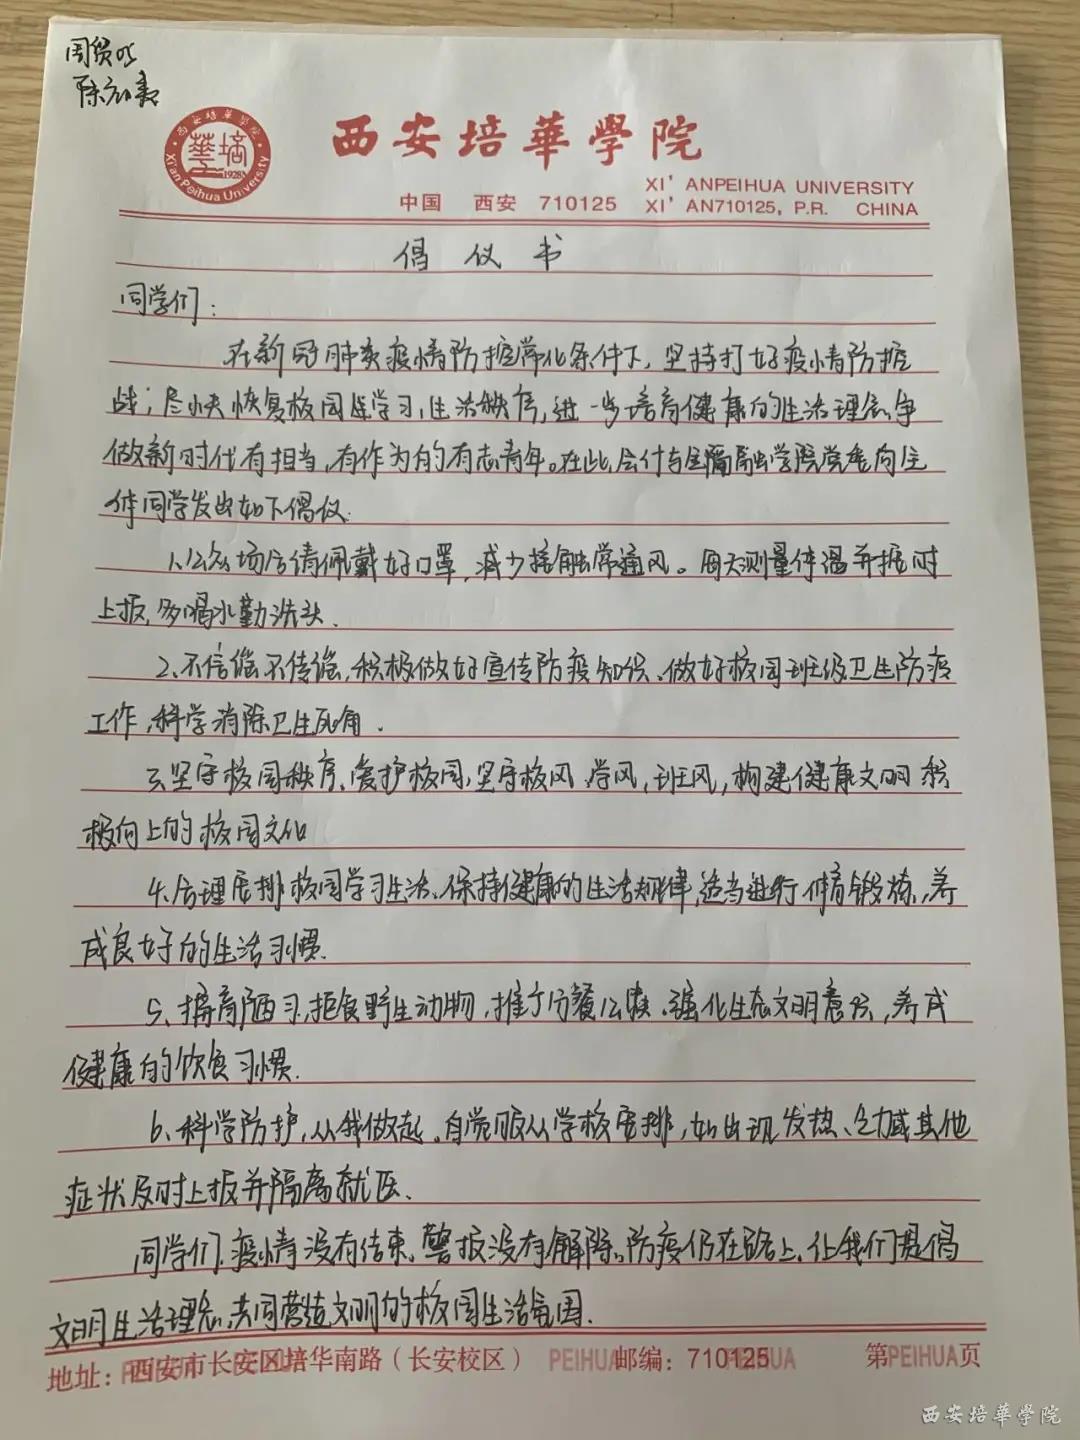 西安培華學院
西安培華學院
Xi'an Peihua University
1928
XI' ANPEIHUA UNIVERSITY
中国 西安 710125 XI' AN710125, P.R. CHINA
倡仪书
同学们:
在新冠肺炎疫情防控常化条件下,坚持打好疫情防控
战;尽快恢复校园学习,生活秩序,进一步培育健康的生活理念,争
做新时代有担当,有作为的有志青年。在此会计与金融学院党委向全
体同学发出如下倡仪:
1.公众场合请佩戴好口罩,减少接触常通风。每天测量体温并按时
上报,多喝水勤洗头.
2.不信谣不传谣,积极做好宣传防疫知识、做好校园班级卫生防疫
工作,科学消除卫生死角.
3.坚守校园秩序、爱护校园,坚守校风、学风,班风,构建健康文明积
极向上的校园文化
4.合理安排校园学习生活、保持健康的生活规律,适当进行体育锻炼,养
成良好的生活习惯.
5、摒弃陋习,拒食野生动物,推广分餐公筷、强化生态文明意识,养成
健康的饮食习惯.
6、科学防护,从我做起。自觉服从学校安排,如出现发热、乏力或其他
症状及时上报并隔离就医.
同学们,疫情没有结束,警报没有解除。防疫仍在路上,让我们提倡
文明生活理念,共同营造文明的校园生活氛围.
地址:西安市长安区培华南路(长安校区) PEIHUA 邮编:710125 第PEIHUA页
西安培華學院